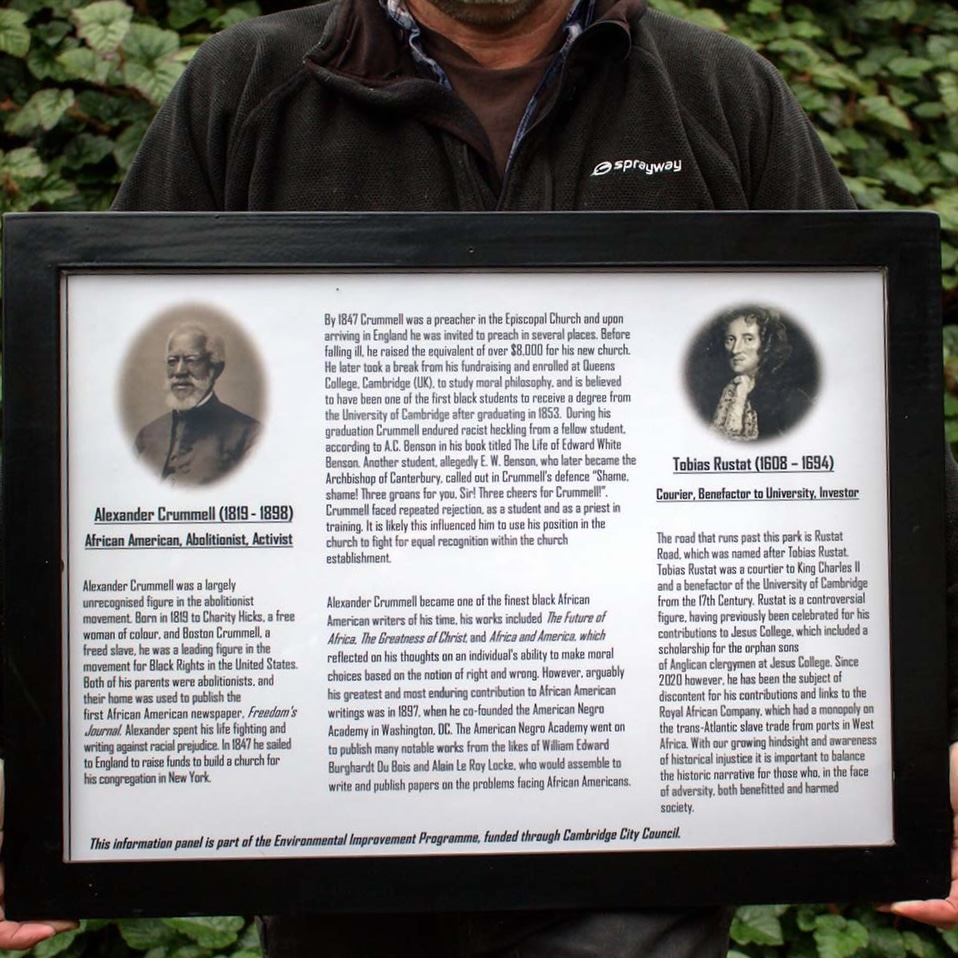 sprayway
Alexander Crummell (1819 - 1898)
African American, Abolitionist, Activist
Alexander Crummell was a largely
unrecognised figure in the abolitionist
movement. Born in 1819 to Charity Hicks, a free
woman of colour, and Boston Crummell, a
freed slave, he was a leading figure in the
movement for Black Rights in the United States.
Both of his parents were abolitionists, and
their home was used to publish the
first African American newspaper, Freedom's
Journal. Alexander spent his life fighting and
writing against racial prejudice. In 1847 he sailed
to England to raise funds to build a church for
his congregation in New York.
By 1847 Crummell was a preacher in the Episcopal Church and upon
arriving in England he was invited to preach in several places. Before
falling ill, he raised the equivalent of over $8,000 for his new church.
He later took a break from his fundraising and enrolled at Queens
College, Cambridge (UK), to study moral philosophy, and is believed
to have been one of the first black students to receive a degree from
the University of Cambridge after graduating in 1853. During his
graduation Crummell endured racist heckling from a fellow student,
according to A.C. Benson in his book titled The Life of Edward White
Benson. Another student, allegedly E. W. Benson, who later became the
Archbishop of Canterbury, called out in Crummell's defence "Shame,
shame! Three groans for you, Sir! Three cheers for Crummell!".
Crummell faced repeated rejection, as a student and as a priest in
training. It is likely this influenced him to use his position in the
church to fight for equal recognition within the church
establishment.
Alexander Crummell became one of the finest black African
American writers of his time, his works included The Future of
Africa, The Greatness of Christ, and Africa and America, which
reflected on his thoughts on an individual's ability to make moral
choices based on the notion of right and wrong. However, arguably
his greatest and most enduring contribution to African American
writings was in 1897, when he co-founded the American Negro
Academy in Washington, DC. The American Negro Academy went on
to publish many notable works from the likes of William Edward
Burghardt Du Bois and Alain Le Roy Locke, who would assemble to
write and publish papers on the problems facing African Americans.
Tobias Rustat (1608 - 1694)
Courier, Benefactor to University, Investor
The road that runs past this park is Rustat
Road, which was named after Tobias Rustat.
Tobias Rustat was a courtier to King Charles II
and a benefactor of the University of Cambridge
from the 17th Century. Rustat is a controversial
figure, having previously been celebrated for his
contributions to Jesus College, which included a
scholarship for the orphan sons
of Anglican clergymen at Jesus College. Since
2020 however, he has been the subject of
discontent for his contributions and links to the
Royal African Company, which had a monopoly on
the trans-Atlantic slave trade from ports in West
Africa. With our growing hindsight and awareness
of historical injustice it is important to balance
the historic narrative for those who, in the face
of adversity, both benefitted and harmed
society.
This information panel is part of the Environmental Improvement Programme, funded through Cambridge City Council.